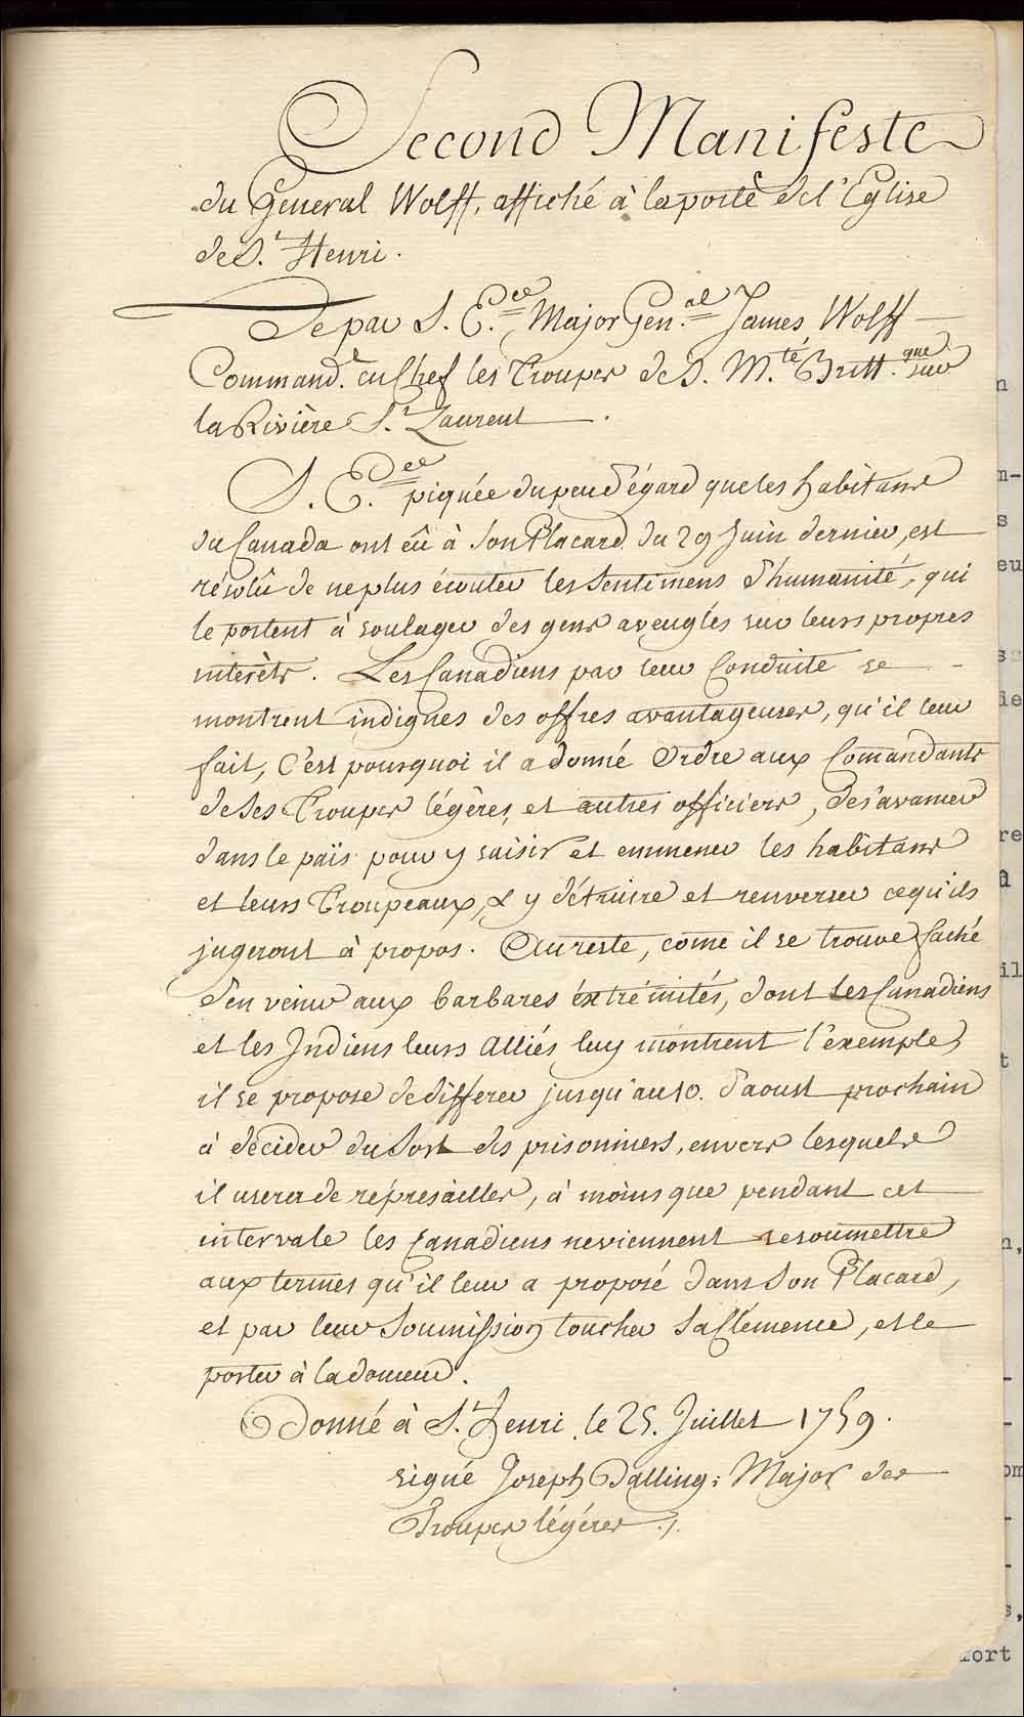 Second Manifeste
du General Wolff, affiché à la porte de l'Eglise
de St. Henri.
De par S. E.ce Major Gen.al James Wolff
Command.t en Chef les Troupes de S. M.té Britt.que sur
la Rivière St. Laurent.
S. E.ce piquée du peu d'égard que les habitans
du Canada ont eû à son Placard du 29 Juin dernier, est
résolû de ne plus écouter les sentimens d'humanité, qui
le portent à soulager des gens aveuglés sur leurs propres
interêts. Les Canadiens par leur Conduite se
montrent indignes des offres avantageuses, qu'il leur
fait, C'est pourquoi il a donné Ordre aux Comandants
de ses Troupes légères, et autres officiers, de s'avancer
dans le païs pour y saisir et emmener les habitans
et leurs Troupeaux, & y détruire et renverser ce qu'ils
jugeront à propos. Au reste, come il se trouve faché
d'en venir aux barbares éxtrémités, dont les Canadiens
et les Indiens leurs Alliés luy montrent l'exemple,
il se propose de differer jusqu'au 10. d'aoust prochain
à décider du Sort des prisonniers, envers lesquels
il usera de réprésailles, à moins que pendant cet
intervale les Canadiens ne viennent se soumettre
aux termes qu'il leur a proposé dans son Placard,
et par leur Soumission toucher sa Clémence, et le
porter à la douceur.
Donné à St. Henri, le 25. Juillet 1759.
signé Joseph Dalling: Major des
Troupes légères ./.
n
n-
s
eu
s
le
re
a
il
t
n,
-
-
om
-
-
s,
fort